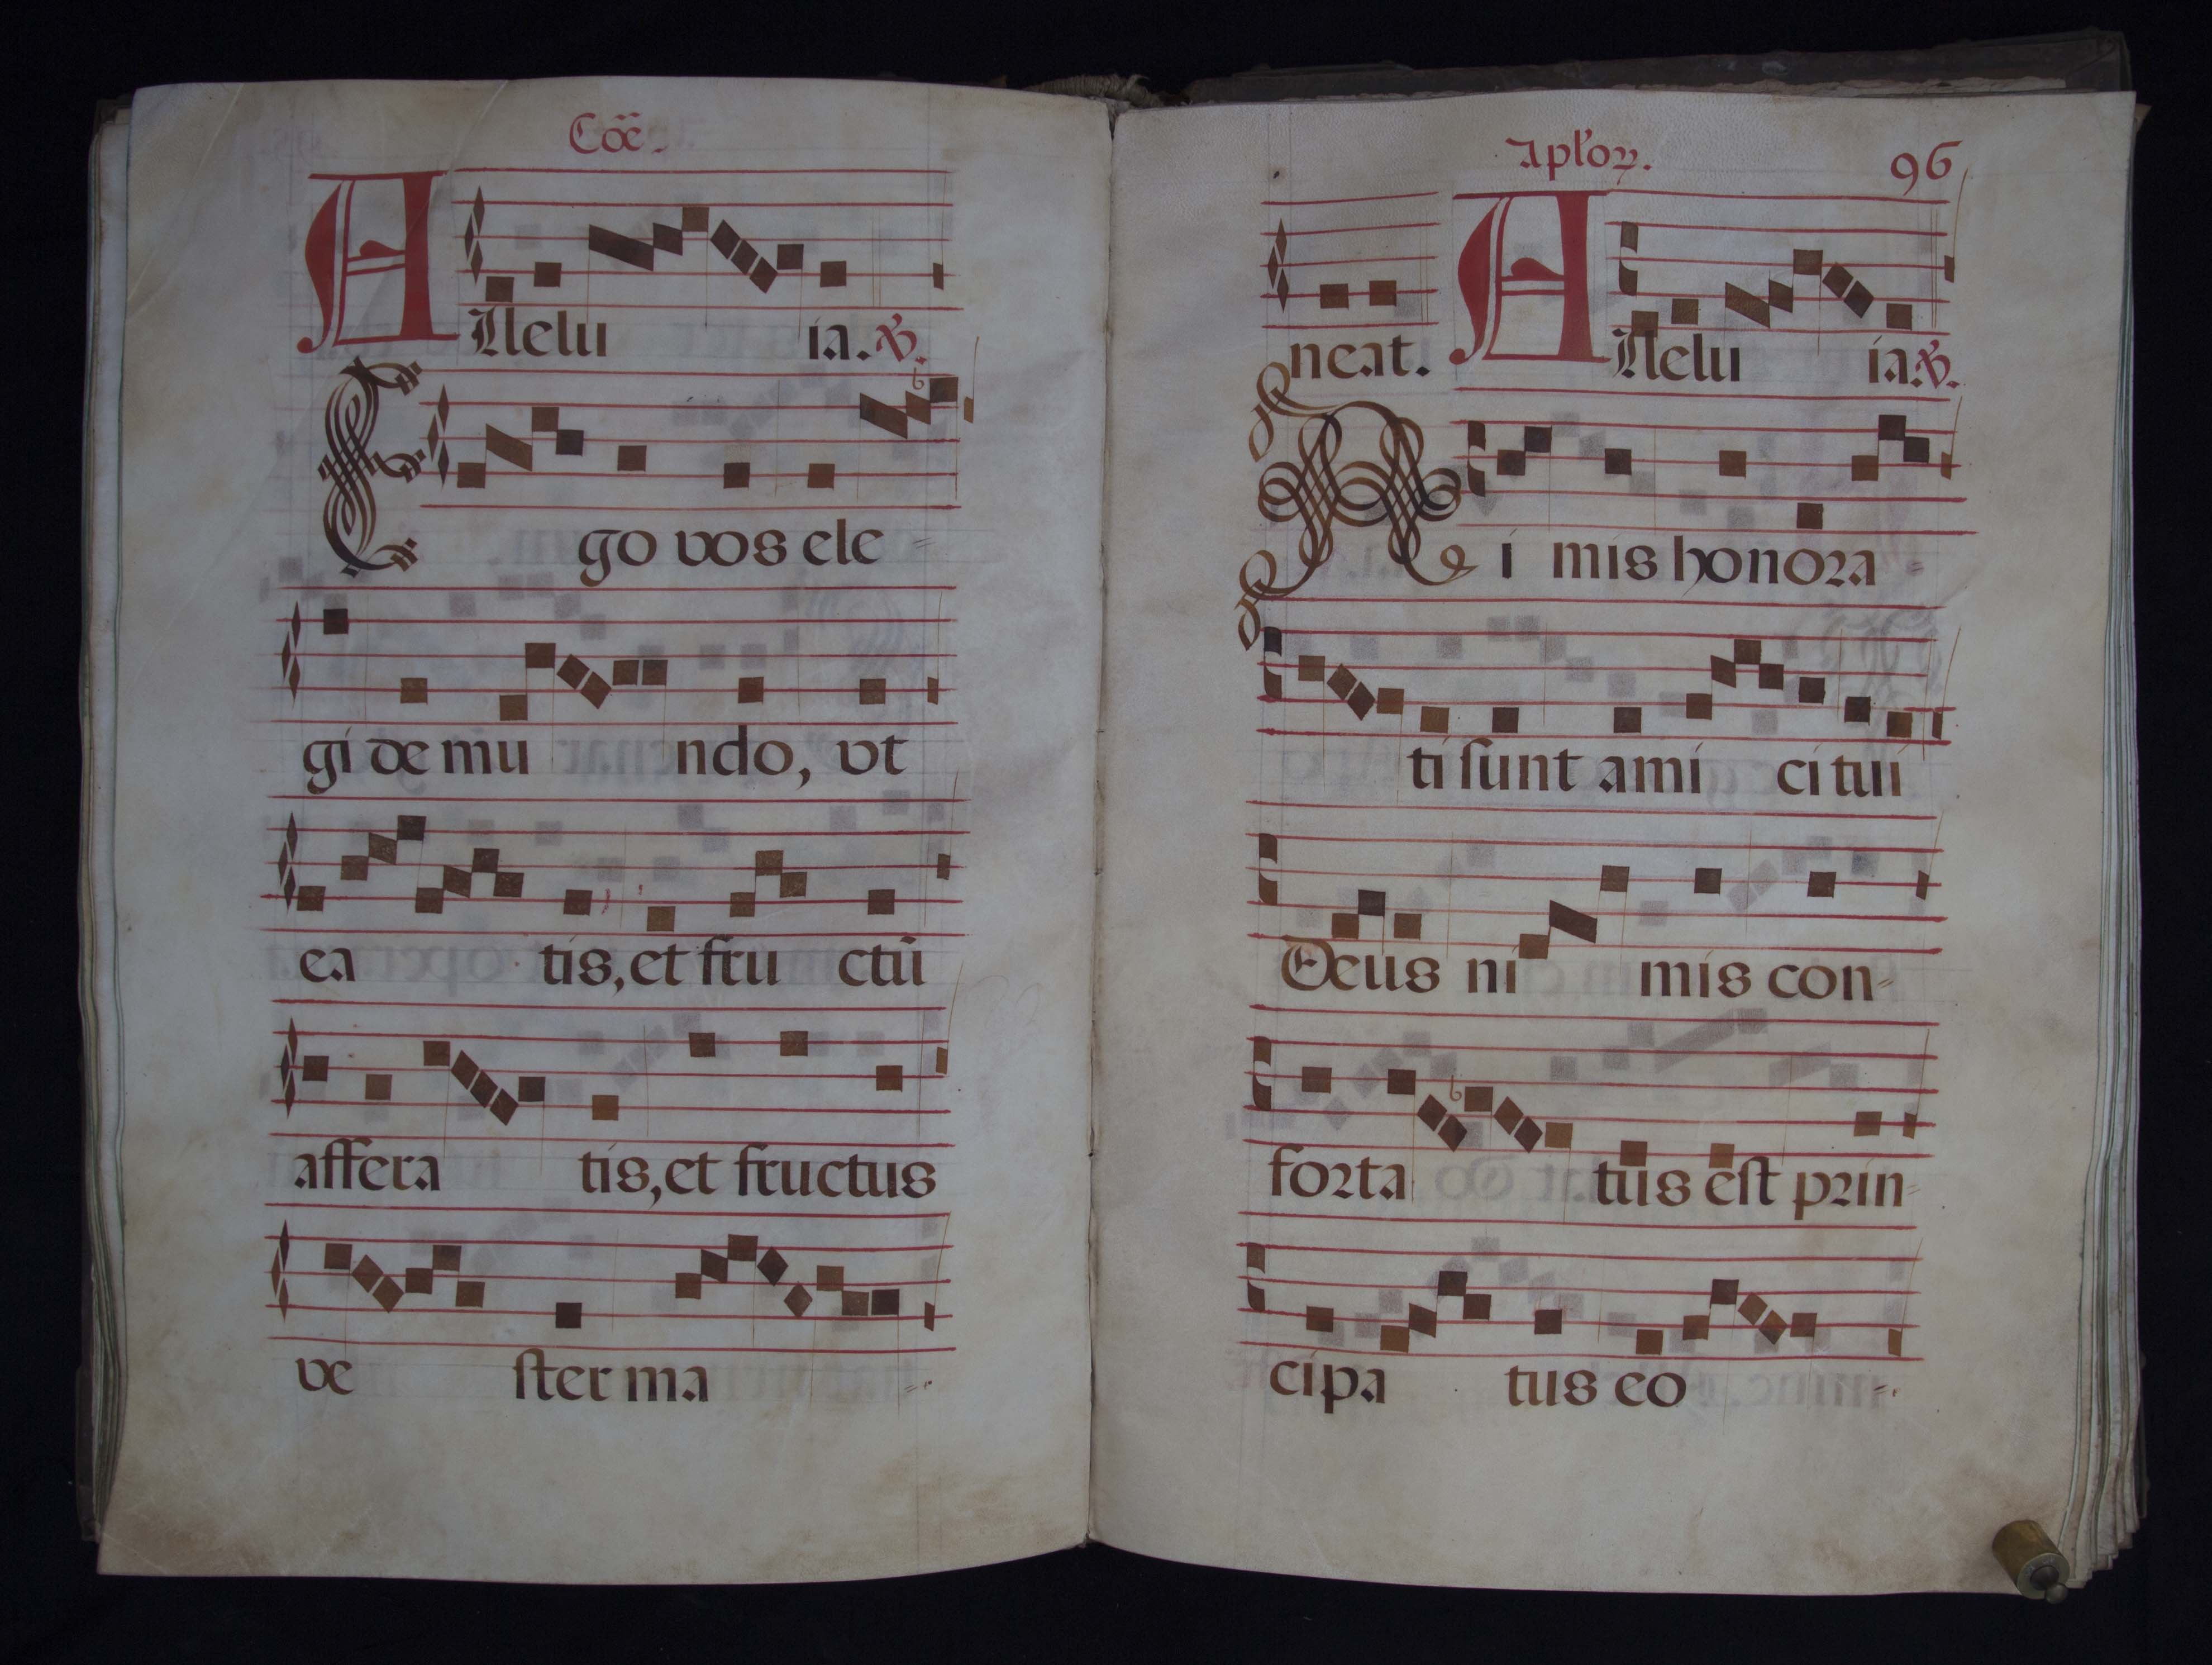 Cōe
Allelu ia. ℣.
Ego vos ele
gi de mu ndo, vt
ea tis, et fru ctū
affera tis, et fructus
ve ster ma
Aplоꝝ. 96
neat. Allelu ia ℣.
Ni mis honora
ti sunt ami ci tui
Deus ni mis con-
forta tus est prin
cipa tus eo